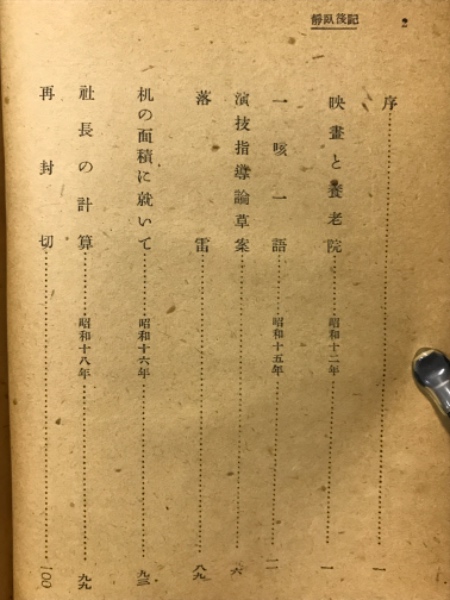 靜臥後記 2
序 一
映畫と養老院 昭和十二年 一
一咳一語 昭和十五年 二
演技指導論草案 六
落雷 八九
机の面積に就いて 昭和十六年 九三
社長の計算 昭和十八年 九九
再封切 一〇〇